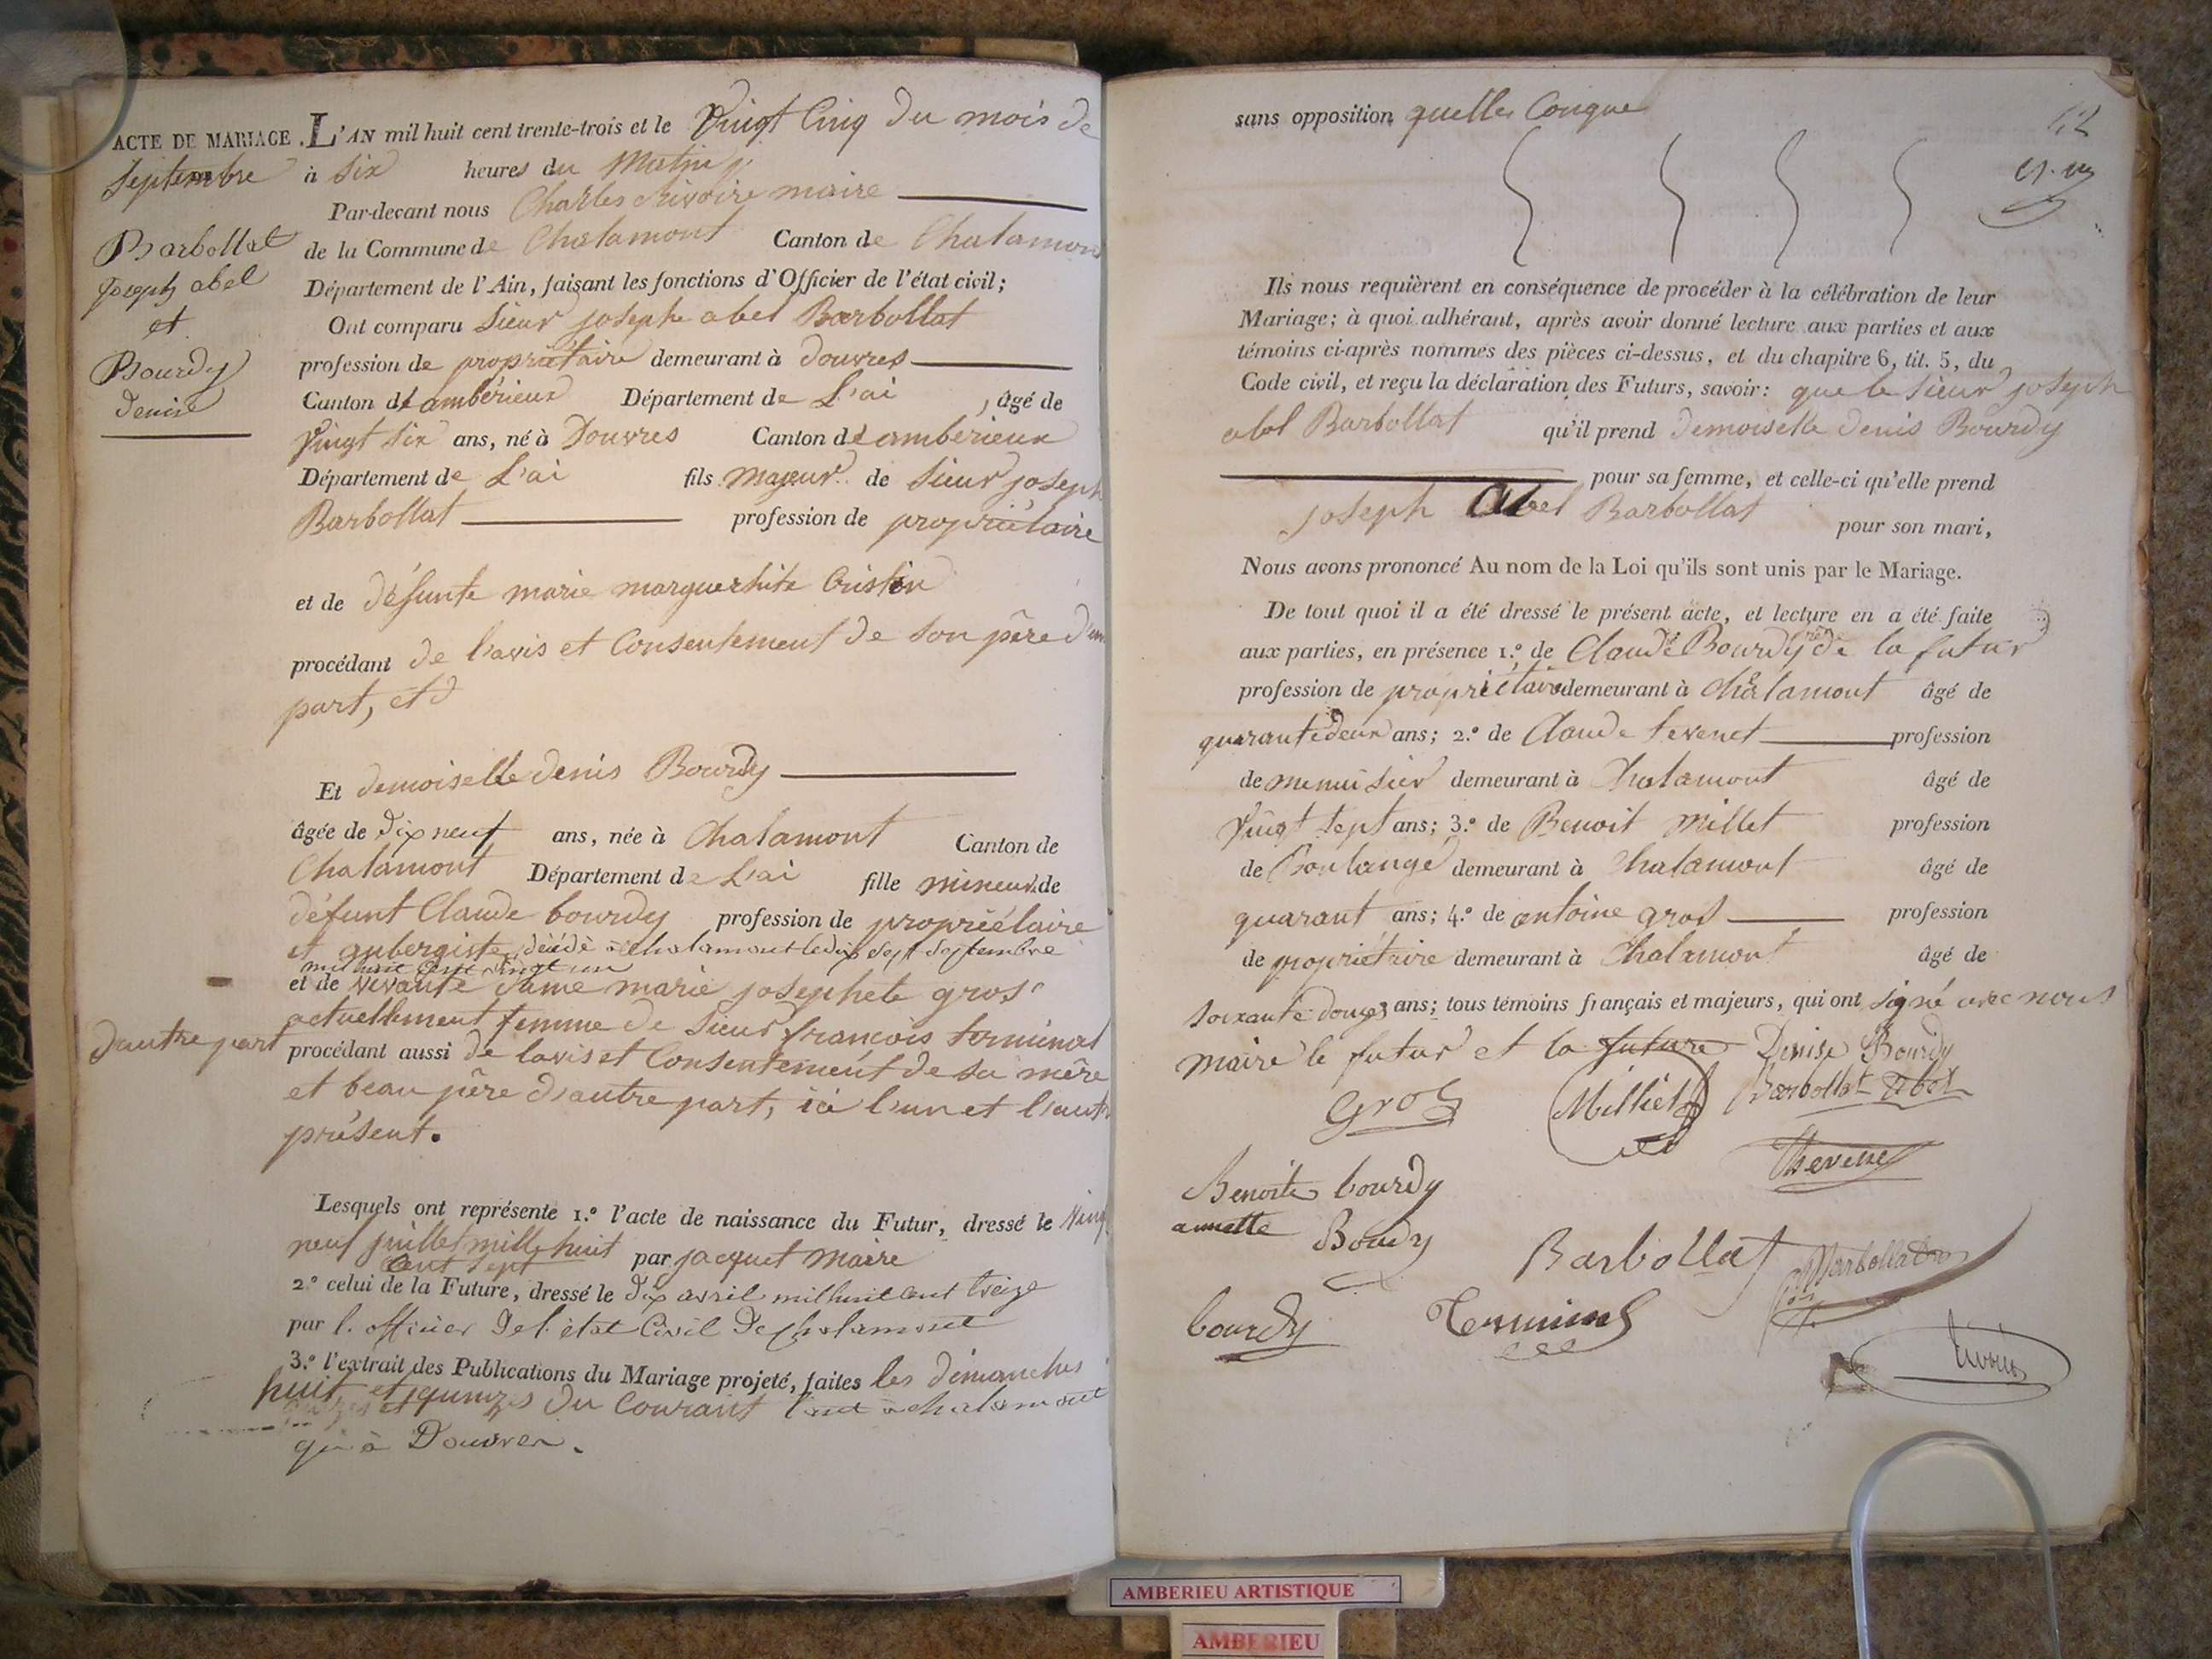 ACTE DE MARIAGE. L'AN mil huit cent trente-trois et le Vingt Cinq du mois de
Septembre à Six heures du Matin
Par-devant nous Charles Rivoire maire
de la Commune de Chalamont Canton de Chalamont
Département de l'Ain, faisant les fonctions d'Officier de l'état civil;
Barbollat
joseph abel
et
Bourdy
denise
Ont comparu Sieur joseph abel Barbollat
profession de propriétaire demeurant à douvres
Canton d'ambérieux Département de L'ai , âgé de
Vingt Six ans, né à Douvres Canton d'ambérieux
Département de L'ai fils majeur de Sieur joseph
Barbollat profession de propriétaire
et de défunte marie marguerhite
procédant de l'avis et Consentement de son père d'une
part, et
Et demoiselle denis Bourdy
âgée de dix neuf ans, née à Chalamont Canton de
Chalamont Département de L'ai fille mineur de
défunt Claude bourdy profession de propriétaire
et aubergiste, décédé à chalamont le dix sept septembre
mil huit cent vingt un
et de vivante dame marie josephete gros
actuellement femme de Sieur françois terminal
dautre part
procédant aussi de lavis et Consentement de sa mère
et beau père d'autre part, ici l'un et l'autre
présent.
Lesquels ont représente 1.º l'acte de naissance du Futur, dressé le Vingt
neuf juillet mille huit
Cent Sept par jacquet maire
2º celui de la Future, dressé le dix avril mil huit cent treize
par l. officier del. état Civil de Chalamont
3.º l'extrait des Publications du Mariage projeté, faites les dimanches
huit et quinze du Courant tant à chalamont
qu'à Douvres.
sans opposition quelles Conque
Ils nous requièrent en conséquence de procéder à la célébration de leur
Mariage; à quoi adhérant, après avoir donné lecture aux parties et aux
témoins ci-après nommés des pièces ci-dessus, et du chapitre 6, tit. 5, du
Code civil, et reçu la déclaration des Futurs, savoir: que le Sieur joseph
abel Barbollat qu'il prend demoiselle denis Bourdy
pour sa femme, et celle-ci qu'elle prend
joseph Abel Barbollat pour son mari,
Nous avons prononcé Au nom de la Loi qu'ils sont unis par le Mariage.
De tout quoi il a été dressé le présent acte, et lecture en a été faite
aux parties, en présence 1.º de Claude Bourdy de la futur
profession de propriétaire demeurant à chalamont âgé de
quarante deux ans; 2.º de Claude tevenet profession
de menuisier demeurant à Chalamont âgé de
Vingt Sept ans; 3.º de Benoit millet profession
de Boulange demeurant à Chalamont âgé de
quarant ans; 4.º de antoine gros profession
de propriétaire demeurant à Chalamont âgé de
soixante douze ans; tous témoins français et majeurs, qui ont signé avec nous
maire le futur et la future Denise Bourdy
Gros Milliet Barbollat Abel
Thevenet
Benoite bourdy
annette Bourdy
Barbollat Barbollat
bourdy Terminal
Rivoire
AMBERIEU ARTISTIQUE
AMBERIEU